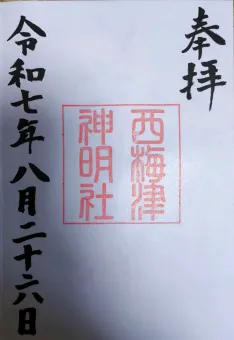 奉拝
西梅津
神明社
令和七年八月二十六日